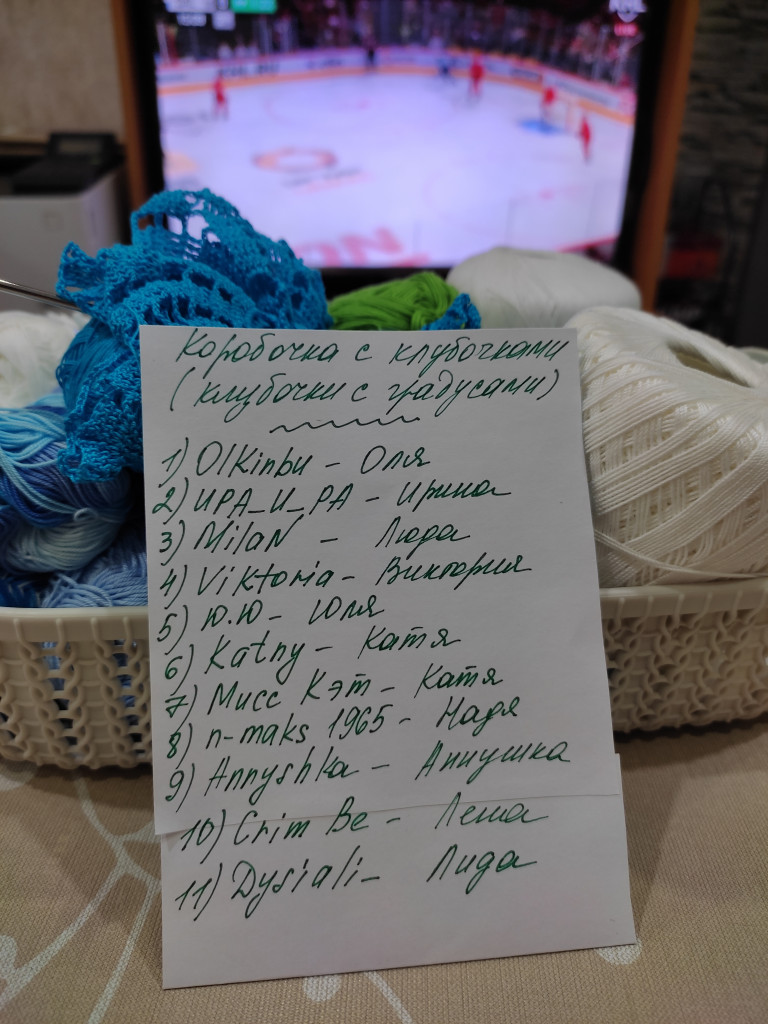 Коробочка с клубочками
(клубочки с градусами)
1) Olkinbu - Оля
2) ИРА_И_РА - Ирина
3) MilaN - Люда
4) Viktoria - Виктория
5) Ю.Ю - Юля
6) Katny - Катя
7) Мисс Кэт - Катя
8) n-maks 1965 - Надя
9) Annyshka - Аннушка
10) Crim Be - Леша
11) Dysiali - Лида